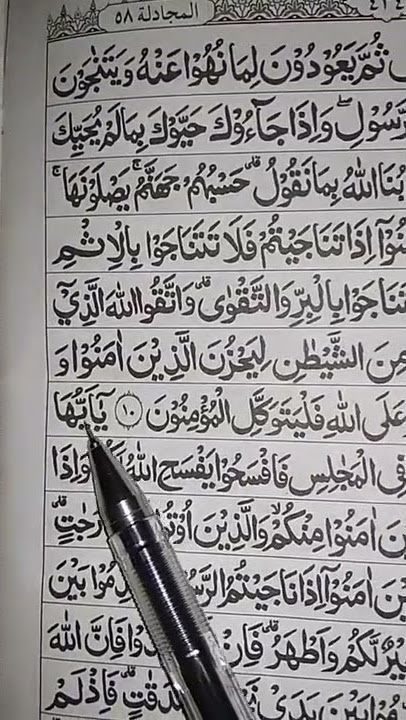 المجادلة ٥٨
ثُمَّ يَعُوْدُوْنَ لِمَا نُهُوْا عَنْهُ وَيَتَنٰجَوْنَ
رَّسُوْلِ ۖ وَاِذَا جَآءُوْكَ حَيَّوْكَ بِمَا لَمْ يُحَيِّكَ
بُنَا اللّٰهُ بِمَا نَقُوْلُ ؕ حَسْبُهُمْ جَهَنَّمُ ۚ يَصْلَوْنَهَا ۚ
اِذَا تَنَاجَيْتُمْ فَلَا تَتَنَاجَوْا بِالْاِثْمِ
بِالْبِرِّ وَالتَّقْوٰى ؕ وَاتَّقُوا اللّٰهَ الَّذِيْٓ
مِنَ الشَّيْطٰنِ لِيَحْزُنَ الَّذِيْنَ اٰمَنُوْا وَ
عَلَى اللّٰهِ فَلْيَتَوَكَّلِ الْمُؤْمِنُوْنَ ﴿۱۰﴾ يٰٓاَيُّهَا
فِى الْمَجٰلِسِ فَافْسَحُوْا يَفْسَحِ اللّٰهُ وَاِذَا
اٰمَنُوْا مِنْكُمْ ۙ وَالَّذِيْنَ
اٰمَنُوْٓا اِذَا نَاجَيْتُمُ بَيْنَ
لَّكُمْ وَاَطْهَرُ ؕ فَاِنَّ اللّٰهَ
بَيْنَ يَدَىْ فَاِذْ لَمْ